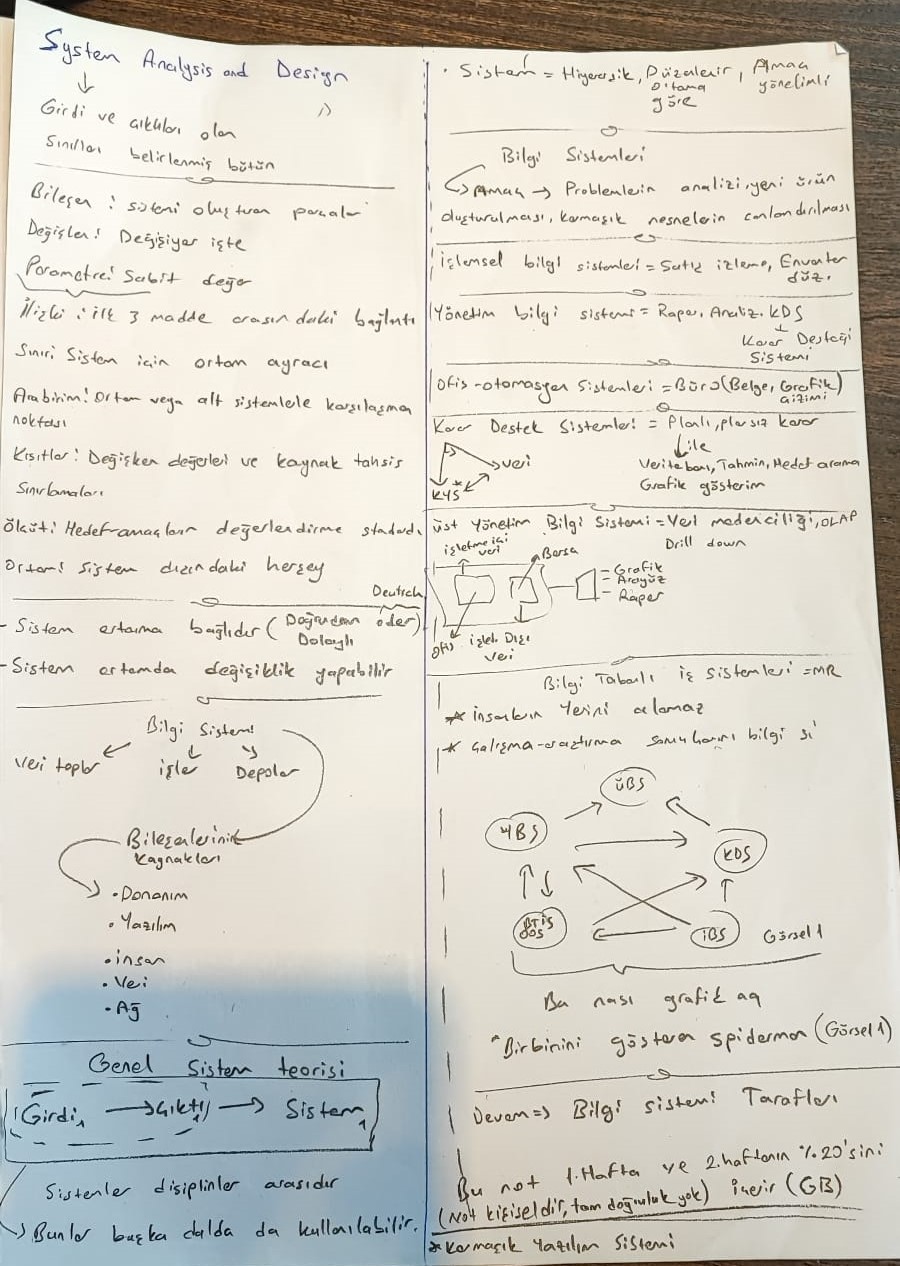 System Analysis and Design
Girdi ve çıktıları olan
Sınırları belirlenmiş bütün
Bileşen : sistemi oluşturan parçalar
Değişken: Değişiyor işte
Parametre: Sabit değer
İlişki : ilk 3 madde arasındaki bağlantı
Sınır: Sistem için ortam ayracı
Arabirim: Ortam veya alt sistemlerle karşılaşma
noktası
Kısıtlar: Değişken değerleri ve kaynak tahsis
Sınırlamaları
Ölçüt: Hedef amaçların değerlendirme standardı
Ortam: Sistem dışındaki herşey
Deutsch
- Sistem ortama bağlıdır (Doğrudan öder)
Dolaylı
- Sistem ortamda değişiklik yapabilir
Bilgi Sistemi
Veri toplar işler Depolar
Bileşenlerinin
kaynakları
• Donanım
• Yazılım
• insan
• Veri
• Ağ
Genel Sistem teorisi
Girdi → Çıktı → Sistem
Sistemler disiplinler arasıdır
Bunlar başka dalda da kullanılabilir.
• Sistem = Hiyerarşik, Düzenlenir, Amaç
Ortama yönelimli
göre
Bilgi Sistemleri
Amaç → Problemlerin analizi, yeni ürün
oluşturulması, karmaşık nesnelerin canlandırılması
İşlemsel bilgi sistemleri = Satış izleme, Envanter
düz.
Yönetim bilgi sistemi = Rapor, Analiz. KDS
Karar Desteği
Sistemi
Ofis-otomasyon Sistemleri = Büro (Belge, Grafik)
çizimi
Karar Destek Sistemleri = Planlı, plansız karar
ile
veri
Veritabanı, Tahmin, Hedef arama
KYS
Grafik gösterim
Üst Yönetim Bilgi Sistemi = Veri madenciliği, OLAP
Drill down
işletme içi
veri
Borsa
= Grafik
= Arayüz
- Rapor
Ofis işlet. Dışı
veri
Bilgi Tabanlı iş sistemleri = MR
* insanların Yerini alamaz
* Çalışma-araştırma sonuçlarını bilgi si
ÜBS
YBS
KDS
OOS
İBS
Görsel 1
Bu nası grafik aq
"Birbirini gösteren spiderman (Görsel 1)
Devam => Bilgi sistemi Tarafları
Bu not 1.Hafta ve 2.haftanın %20'sini
(Not kişiseldir, tam doğruluk yok) içerir (GB)
* Karmaşık Yazılım Sistemi